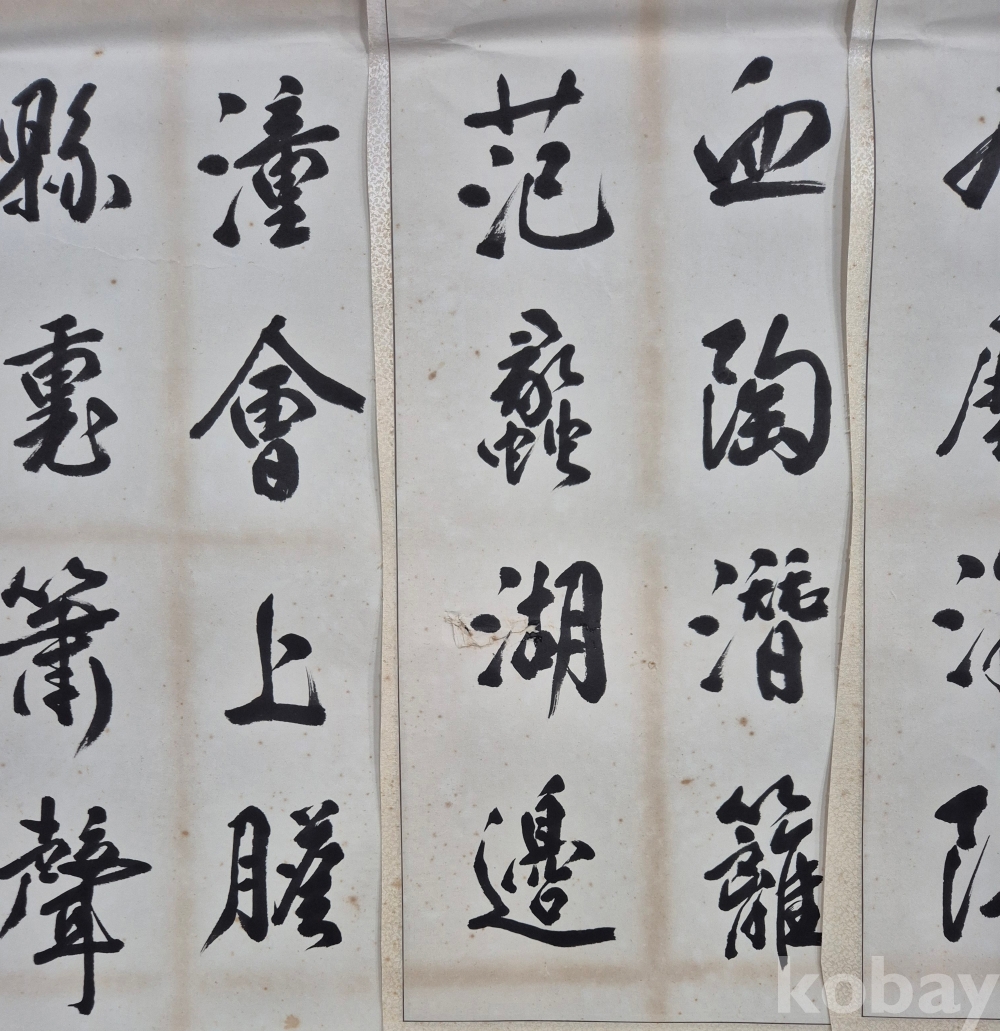 血陶潛籬
范蠡湖邊
潼會上膽
縣裏簫聲
kobay